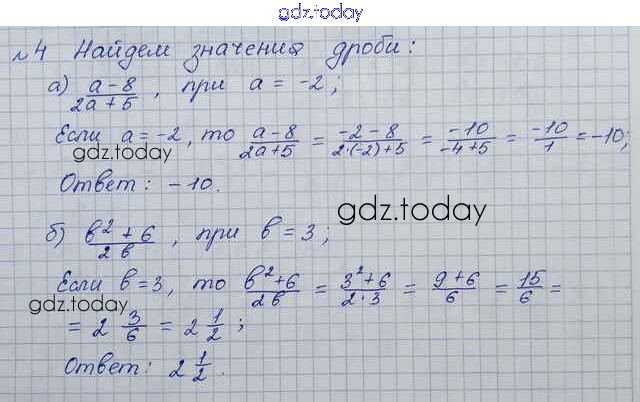 gdz.today
№4 Найдем значения дроби:
а) (a-8)/(2a+5), при a = -2;
Если a = -2, то (a-8)/(2a+5) = (-2-8)/(2·(-2)+5) = (-10)/(-4+5) = (-10)/1 = -10;
gdz.today
Ответ: -10.
gdz.today
б) (b²+6)/(2b), при b = 3;
Если b = 3, то (b²+6)/(2b) = (3²+6)/(2·3) = (9+6)/6 = 15/6 =
gdz.today
= 2 3/6 = 2 1/2;
Ответ: 2 1/2.
gdz.today